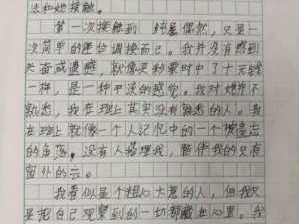 法和她接触。
第一次接触到 纯属偶然，只是一
次简单的座位调换而已。我并没有感到
失望或遗憾，就像买彩票时中了十元钱
一样，是一种平淡的感觉。我对她并不
熟悉，我在班上其实没有熟悉的人。我
在班上就像一个人记忆中的一个被遗忘
的角落，没有人搭理我，陪伴我的只有
窗外的云。
我看似是个粗心大意的人，但我只
是把自己观察到的一切都藏在心里。我